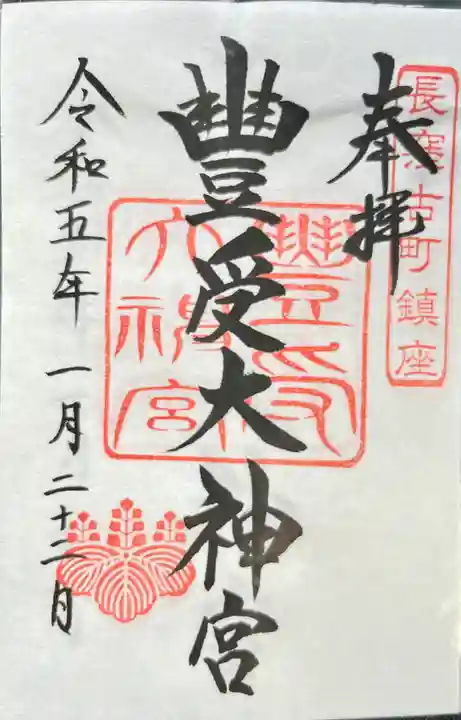 長窪古町鎮座
奉拝
豐受大神宮
豐受
大神宮
令和五年一月二十二日